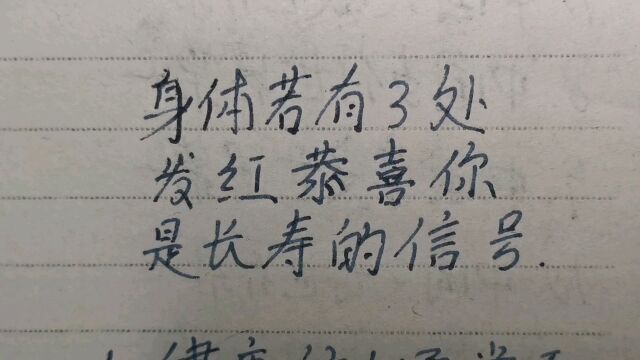 身体若有3处
发红恭喜你
是长寿的信号.